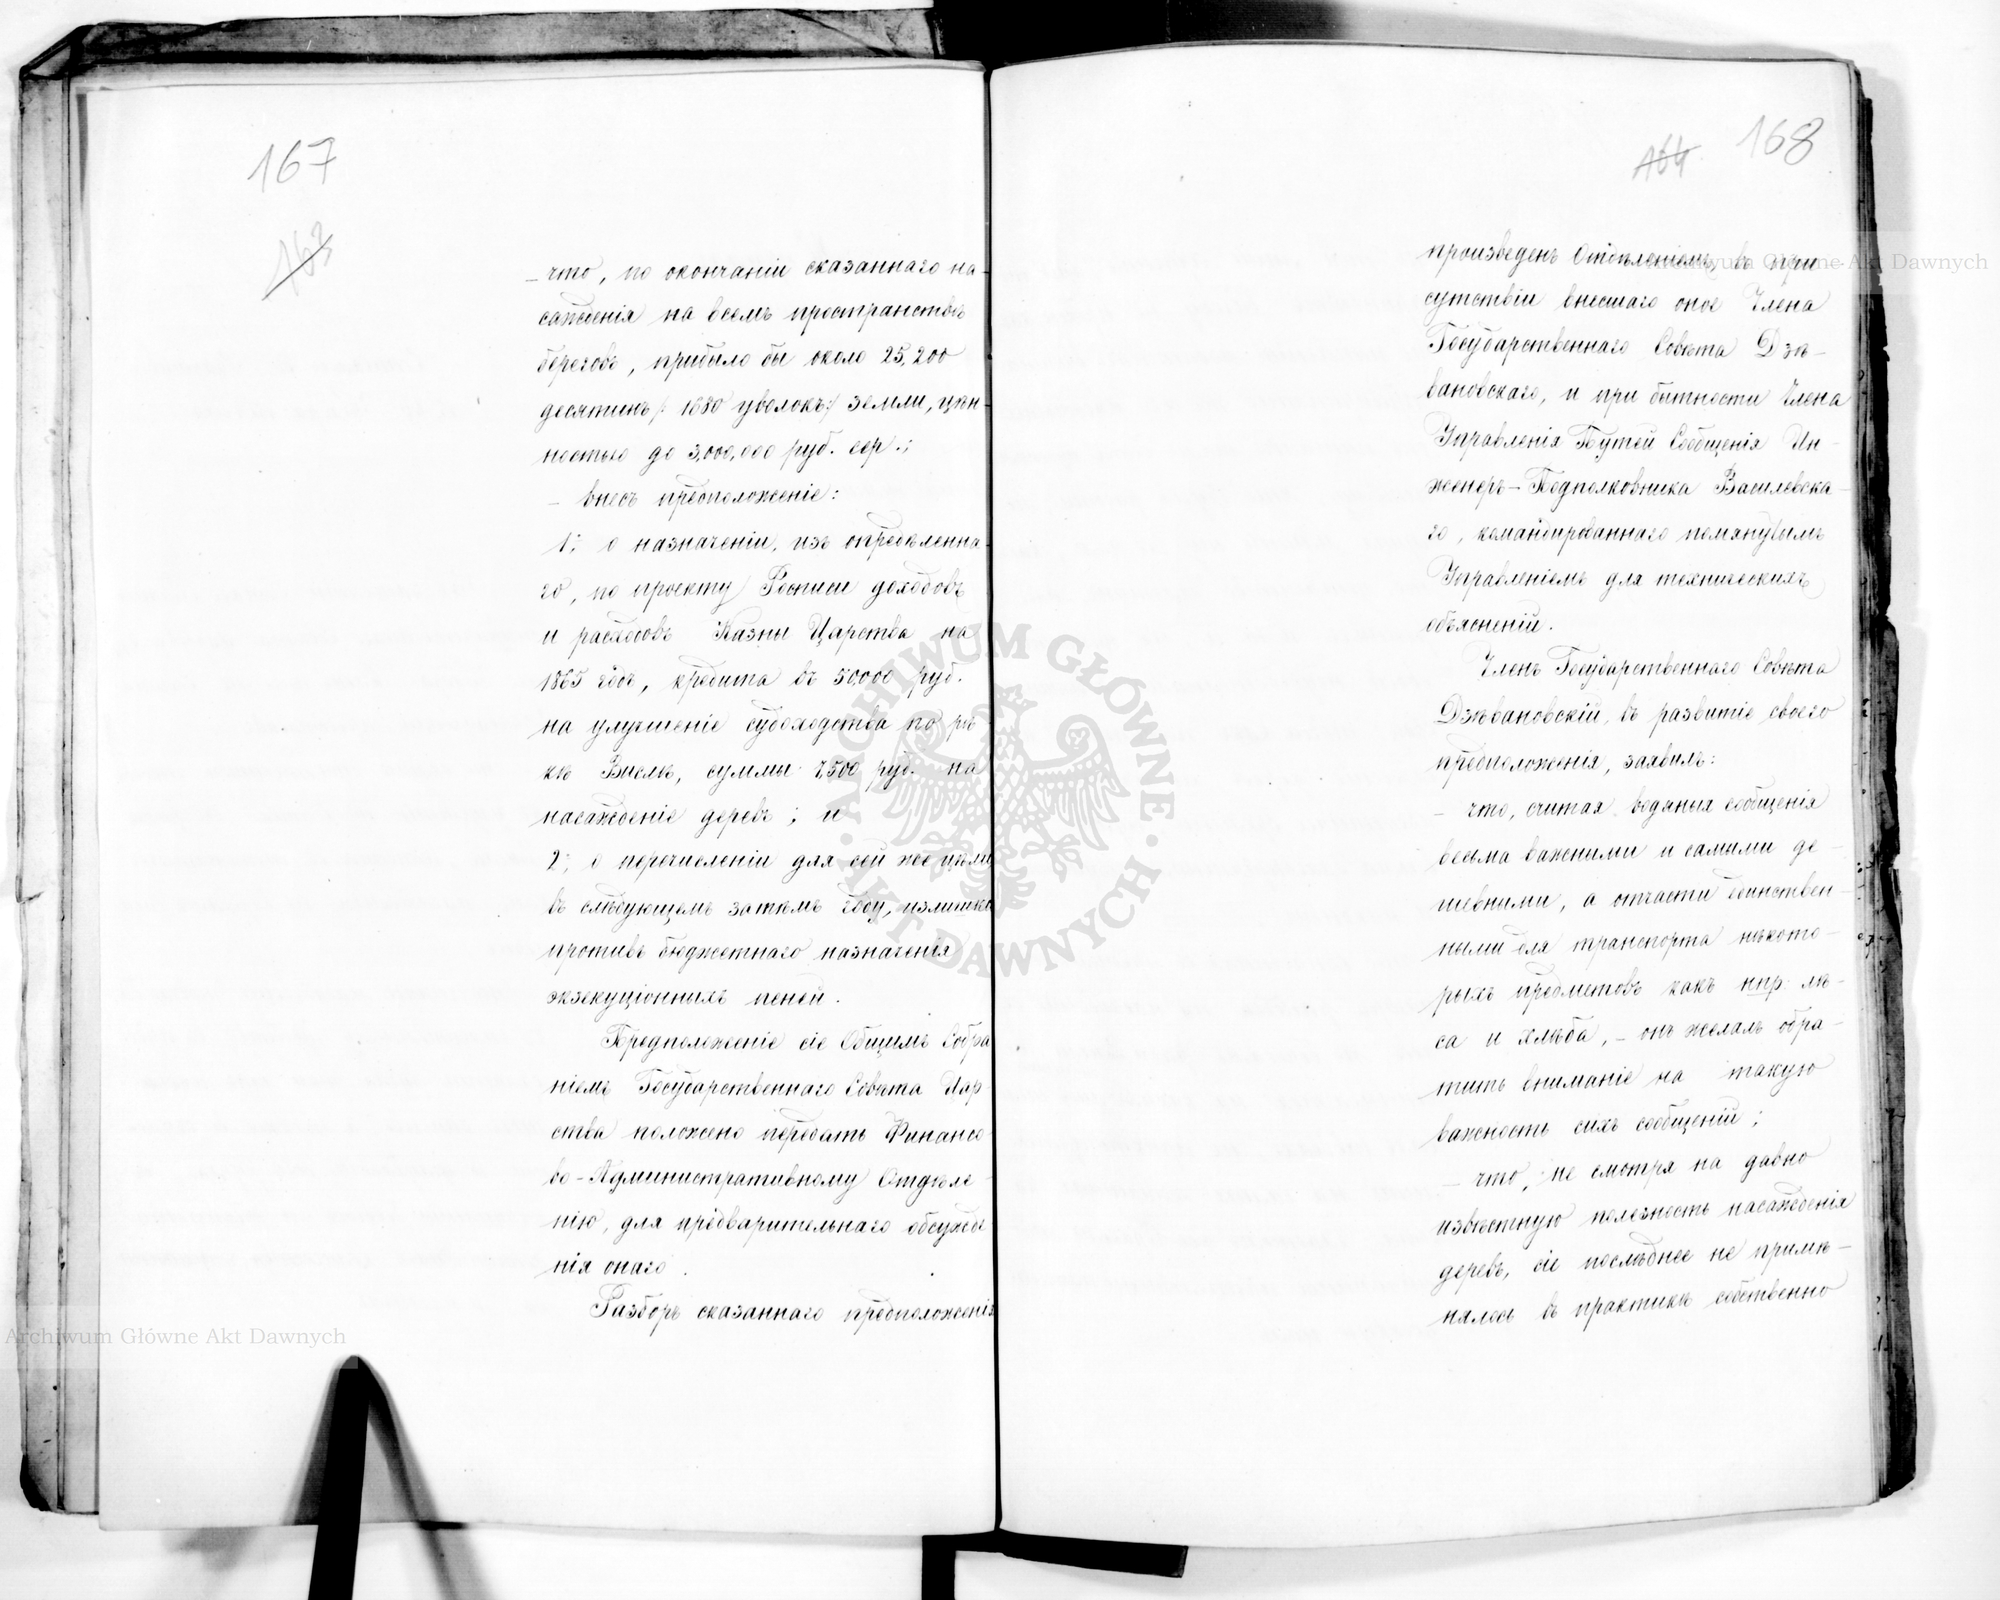 167
163
– что, по окончаніи сказаннаго на-
сажденія на всемъ пространствѣ
береговъ, прибыло бы около 25,200
десятинъ /: 1680 уволокъ:/ земли, цѣн-
ностью до 3,000,000 руб. сер.;
– внесъ предположеніе:
1; о назначеніи, изъ опредѣленна-
го, по проекту Росписи доходовъ
и расходовъ Казны Царства на
1865 годъ, кредита въ 50000 руб.
на улучшеніе судоходства по рѣ-
кѣ Вислѣ, суммы 7,500 руб. на
насажденіе деревъ; и
2; о перечисленіи для сей же цѣли
въ слѣдующемъ затѣмъ году, излишка
противъ бюджетнаго назначенія
экзекуціонныхъ пеней.
Предположеніе сіе Общимъ Собра
ніемъ Государственнаго Совѣта Цар-
ства положено передать Финансо-
во-Административному Отдѣле-
нію, для предварительнаго обсужде
нія онаго.
Разборъ сказаннаго предположенія
164 168
произведенъ Отдѣленіемъ, въ при-
сутствіи внесшаго оное Члена
Государственнаго Совѣта Дзѣ-
вановскаго, и при бытности Члена
Управленія Путей Сообщенія Ин-
женеръ-Подполковника Василевска-
го, командированнаго помянутымъ
Управленіемъ для техническихъ
объясненій.
Членъ Государственнаго Совѣта
Дзѣвановскій, въ развитіе своего
предположенія, заявилъ:
– что, считая водяныя сообщенія
весьма важными и самыми де-
шевыми, а отчасти единствен-
ными для транспорта нѣкото-
рыхъ предметовъ какъ нпр: лѣ-
са и хлѣба, – онъ желалъ обра-
тить вниманіе на такую
важность сихъ сообщеній;
– что, не смотря на давно
извѣстную полезность насажденія
деревъ, сіе послѣднее не примѣ-
нялось въ практикѣ собственно
Archiwum Główne Akt Dawnych
Archiwum Główne Akt Dawnych
· ARCHIWUM GŁÓWNE · AKT DAWNYCH